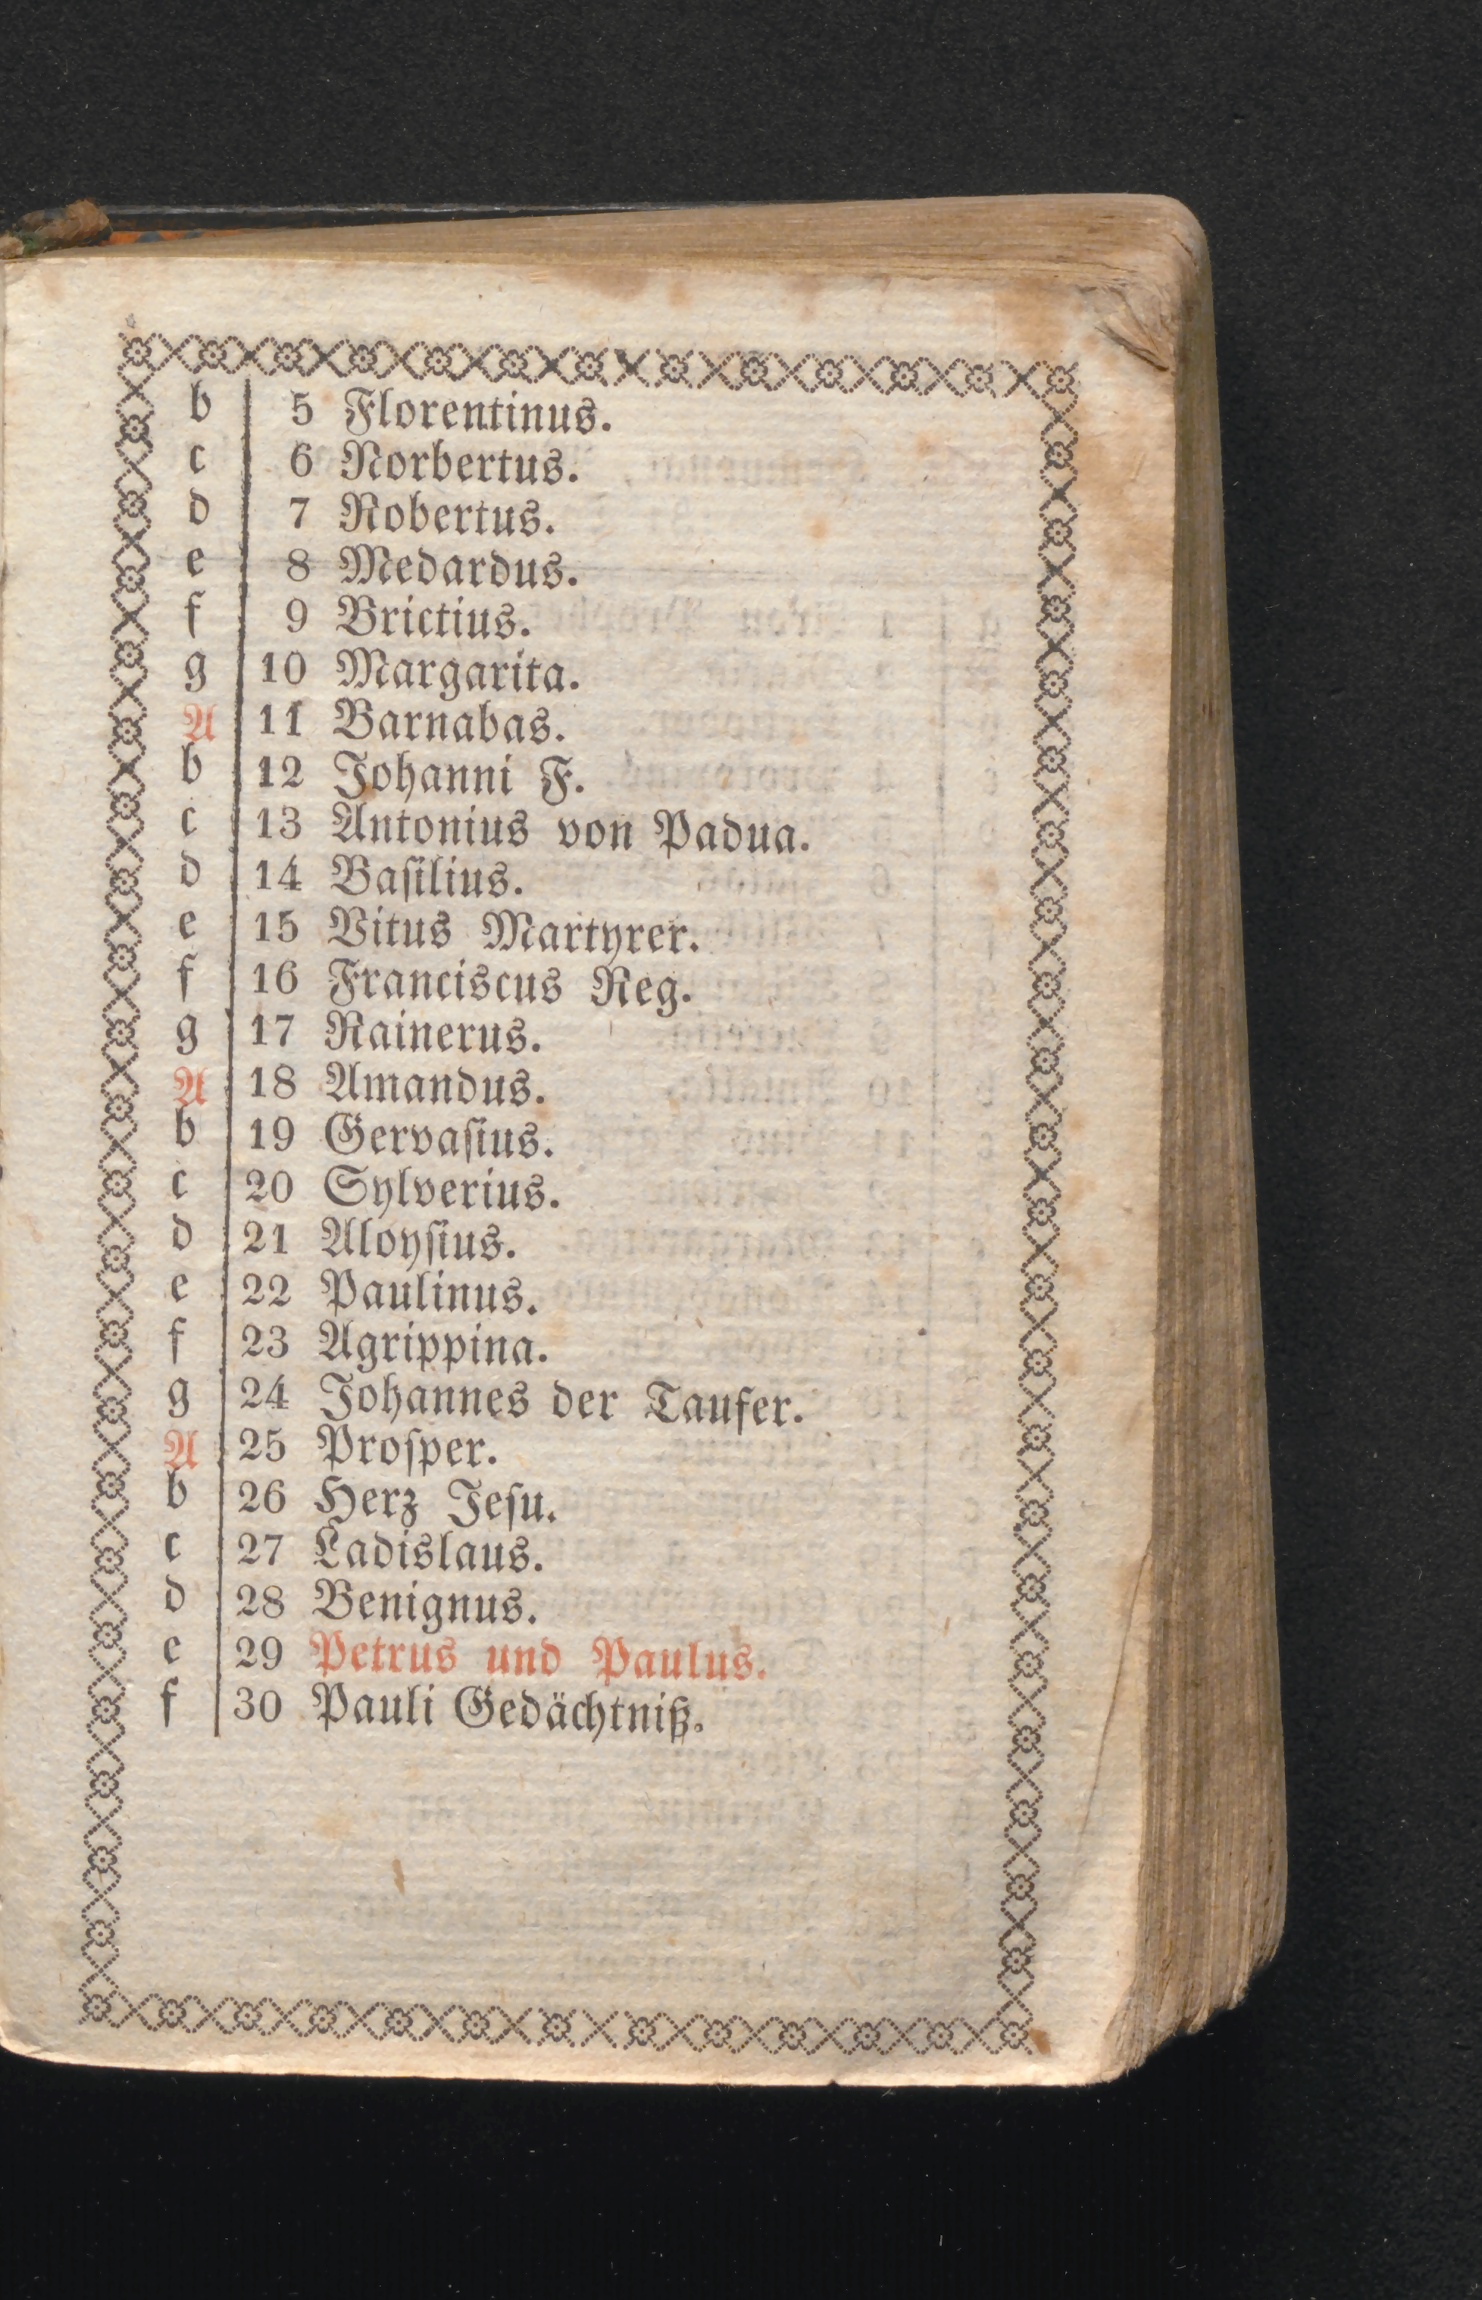 b 5 Florentinus.
c 6 Norbertus.
d 7 Robertus.
e 8 Medardus.
f 9 Brictius.
g 10 Margarita.
A 11 Barnabas.
b 12 Johanni F.
c 13 Antonius von Padua.
d 14 Baſilius.
e 15 Vitus Martyrer.
f 16 Franciscus Reg.
g 17 Rainerus.
A 18 Amandus.
b 19 Gervaſius.
c 20 Sylverius.
d 21 Aloyſius.
e 22 Paulinus.
f 23 Agrippina.
g 24 Johannes der Taufer.
A 25 Proſper.
b 26 Herz Jeſu.
c 27 Ladislaus.
d 28 Benignus.
e 29 Petrus und Paulus.
f 30 Pauli Gedächtniß.